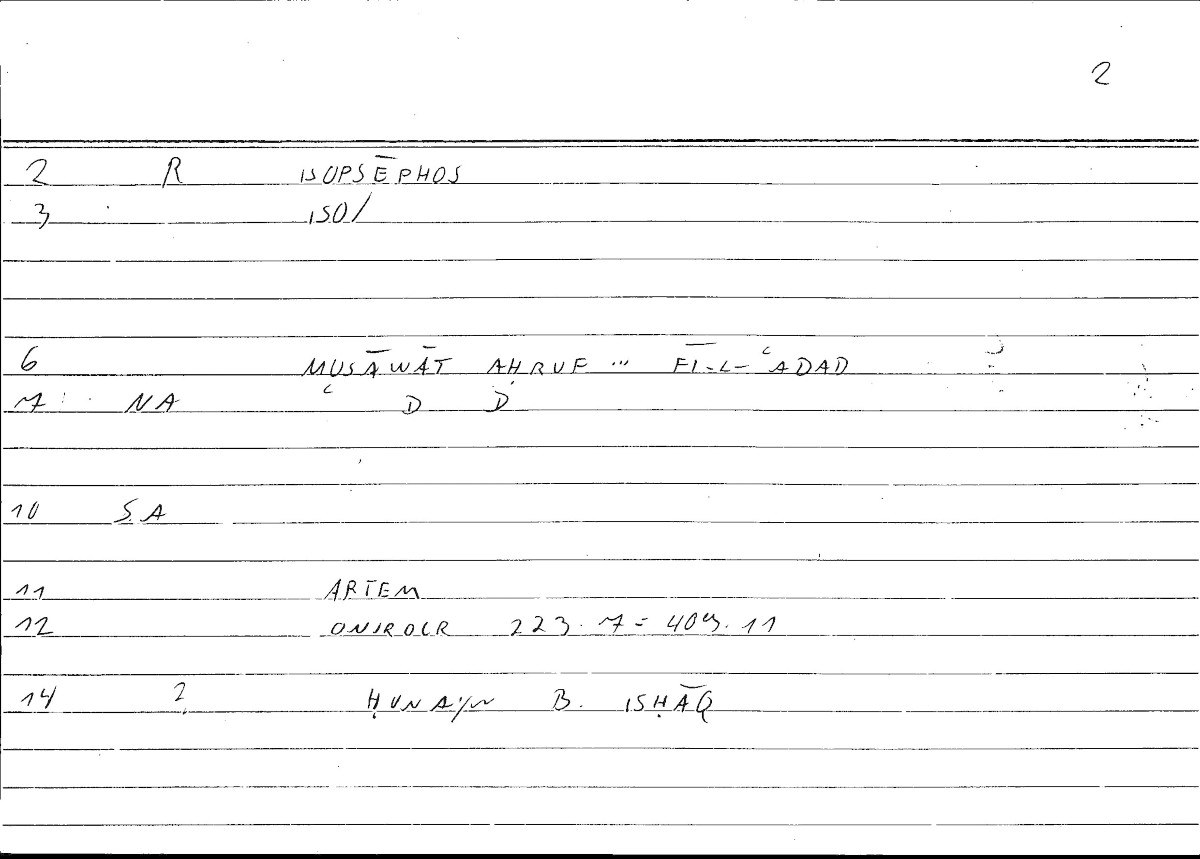 2
2 R ISOPSĒPHOS
3 ISO/
6 MUSĀWĀT AḤRUF ... FĪ-L- ʿADAD
7 NA ʿ D D
10 S.A
11 ARTEM
12 ONIROCR 223.7 = 409.11
14 2 ḤUNAYN B. ISḤĀQ